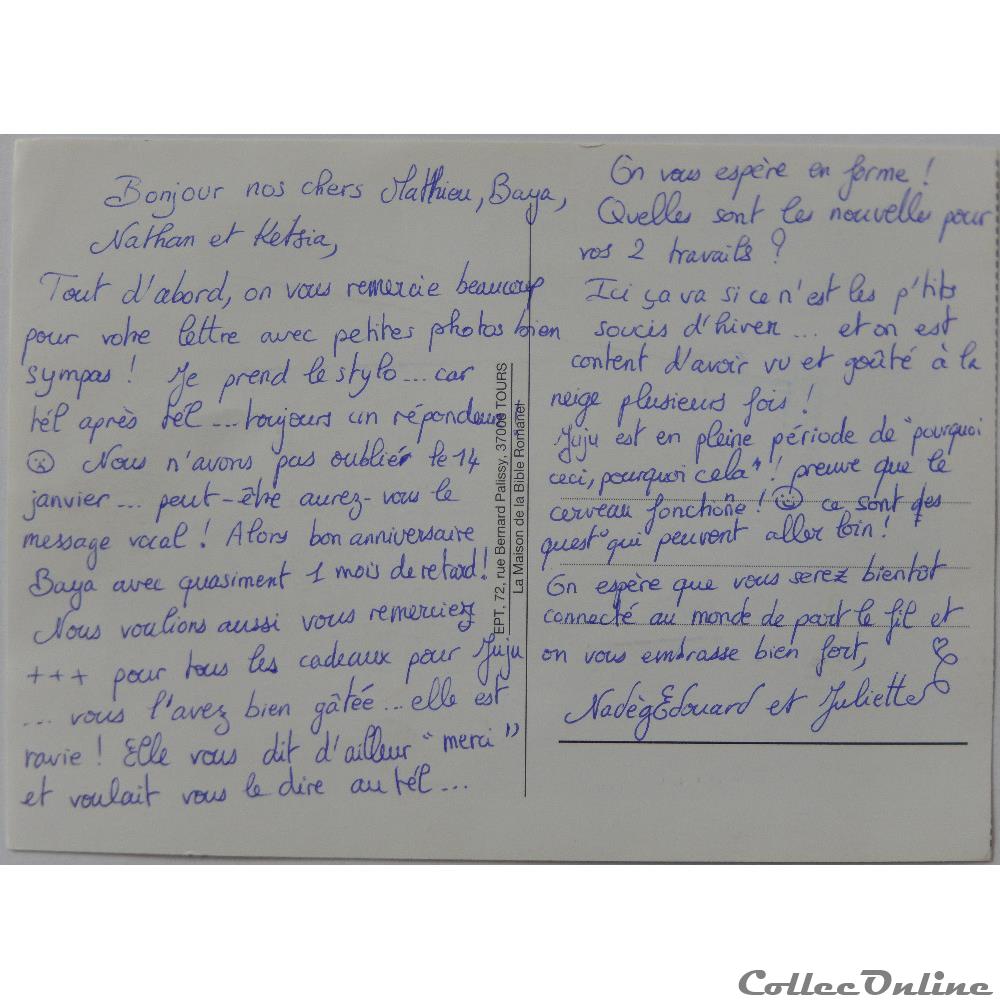 Bonjour nos chers Matthieu, Baya,
Nathan et Ketsia,
Tout d'abord, on vous remercie beaucoup
pour votre lettre avec petites photos bien
sympas ! Je prend le stylo... car
tél après tél... toujours un répondeur
☹ Nous n'avons pas oublier le 14
janvier... peut-être aurez-vous le
message vocal ! Alors bon anniversaire
Baya avec quasiment 1 mois de retard !
Nous voulions aussi vous remerciez
+++ pour tous les cadeaux pour Juju
... vous l'avez bien gâtée... elle est
ravie ! Elle vous dit d'ailleur "merci"
et voulait vous le dire au tél...
EPT, 72, rue Bernard Palissy, 37000 TOURS
La Maison de la Bible Romanel
On vous espère en forme !
Quelles sont les nouvelles pour
vos 2 travails ?
Ici ça va si ce n'est les p'tits
soucis d'hiver... et on est
content d'avoir vu et goûté à la
neige plusieurs fois !
Juju est en pleine période de "pourquoi
ceci, pourquoi cela" ! preuve que le
cerveau fonctionne ! ☺ ce sont des
quest° qui peuvent aller loin !
On espère que vous serez bientôt
connecté au monde de part le fil et
on vous embrasse bien fort,
NadègEdouard et Juliette
CollecOnline